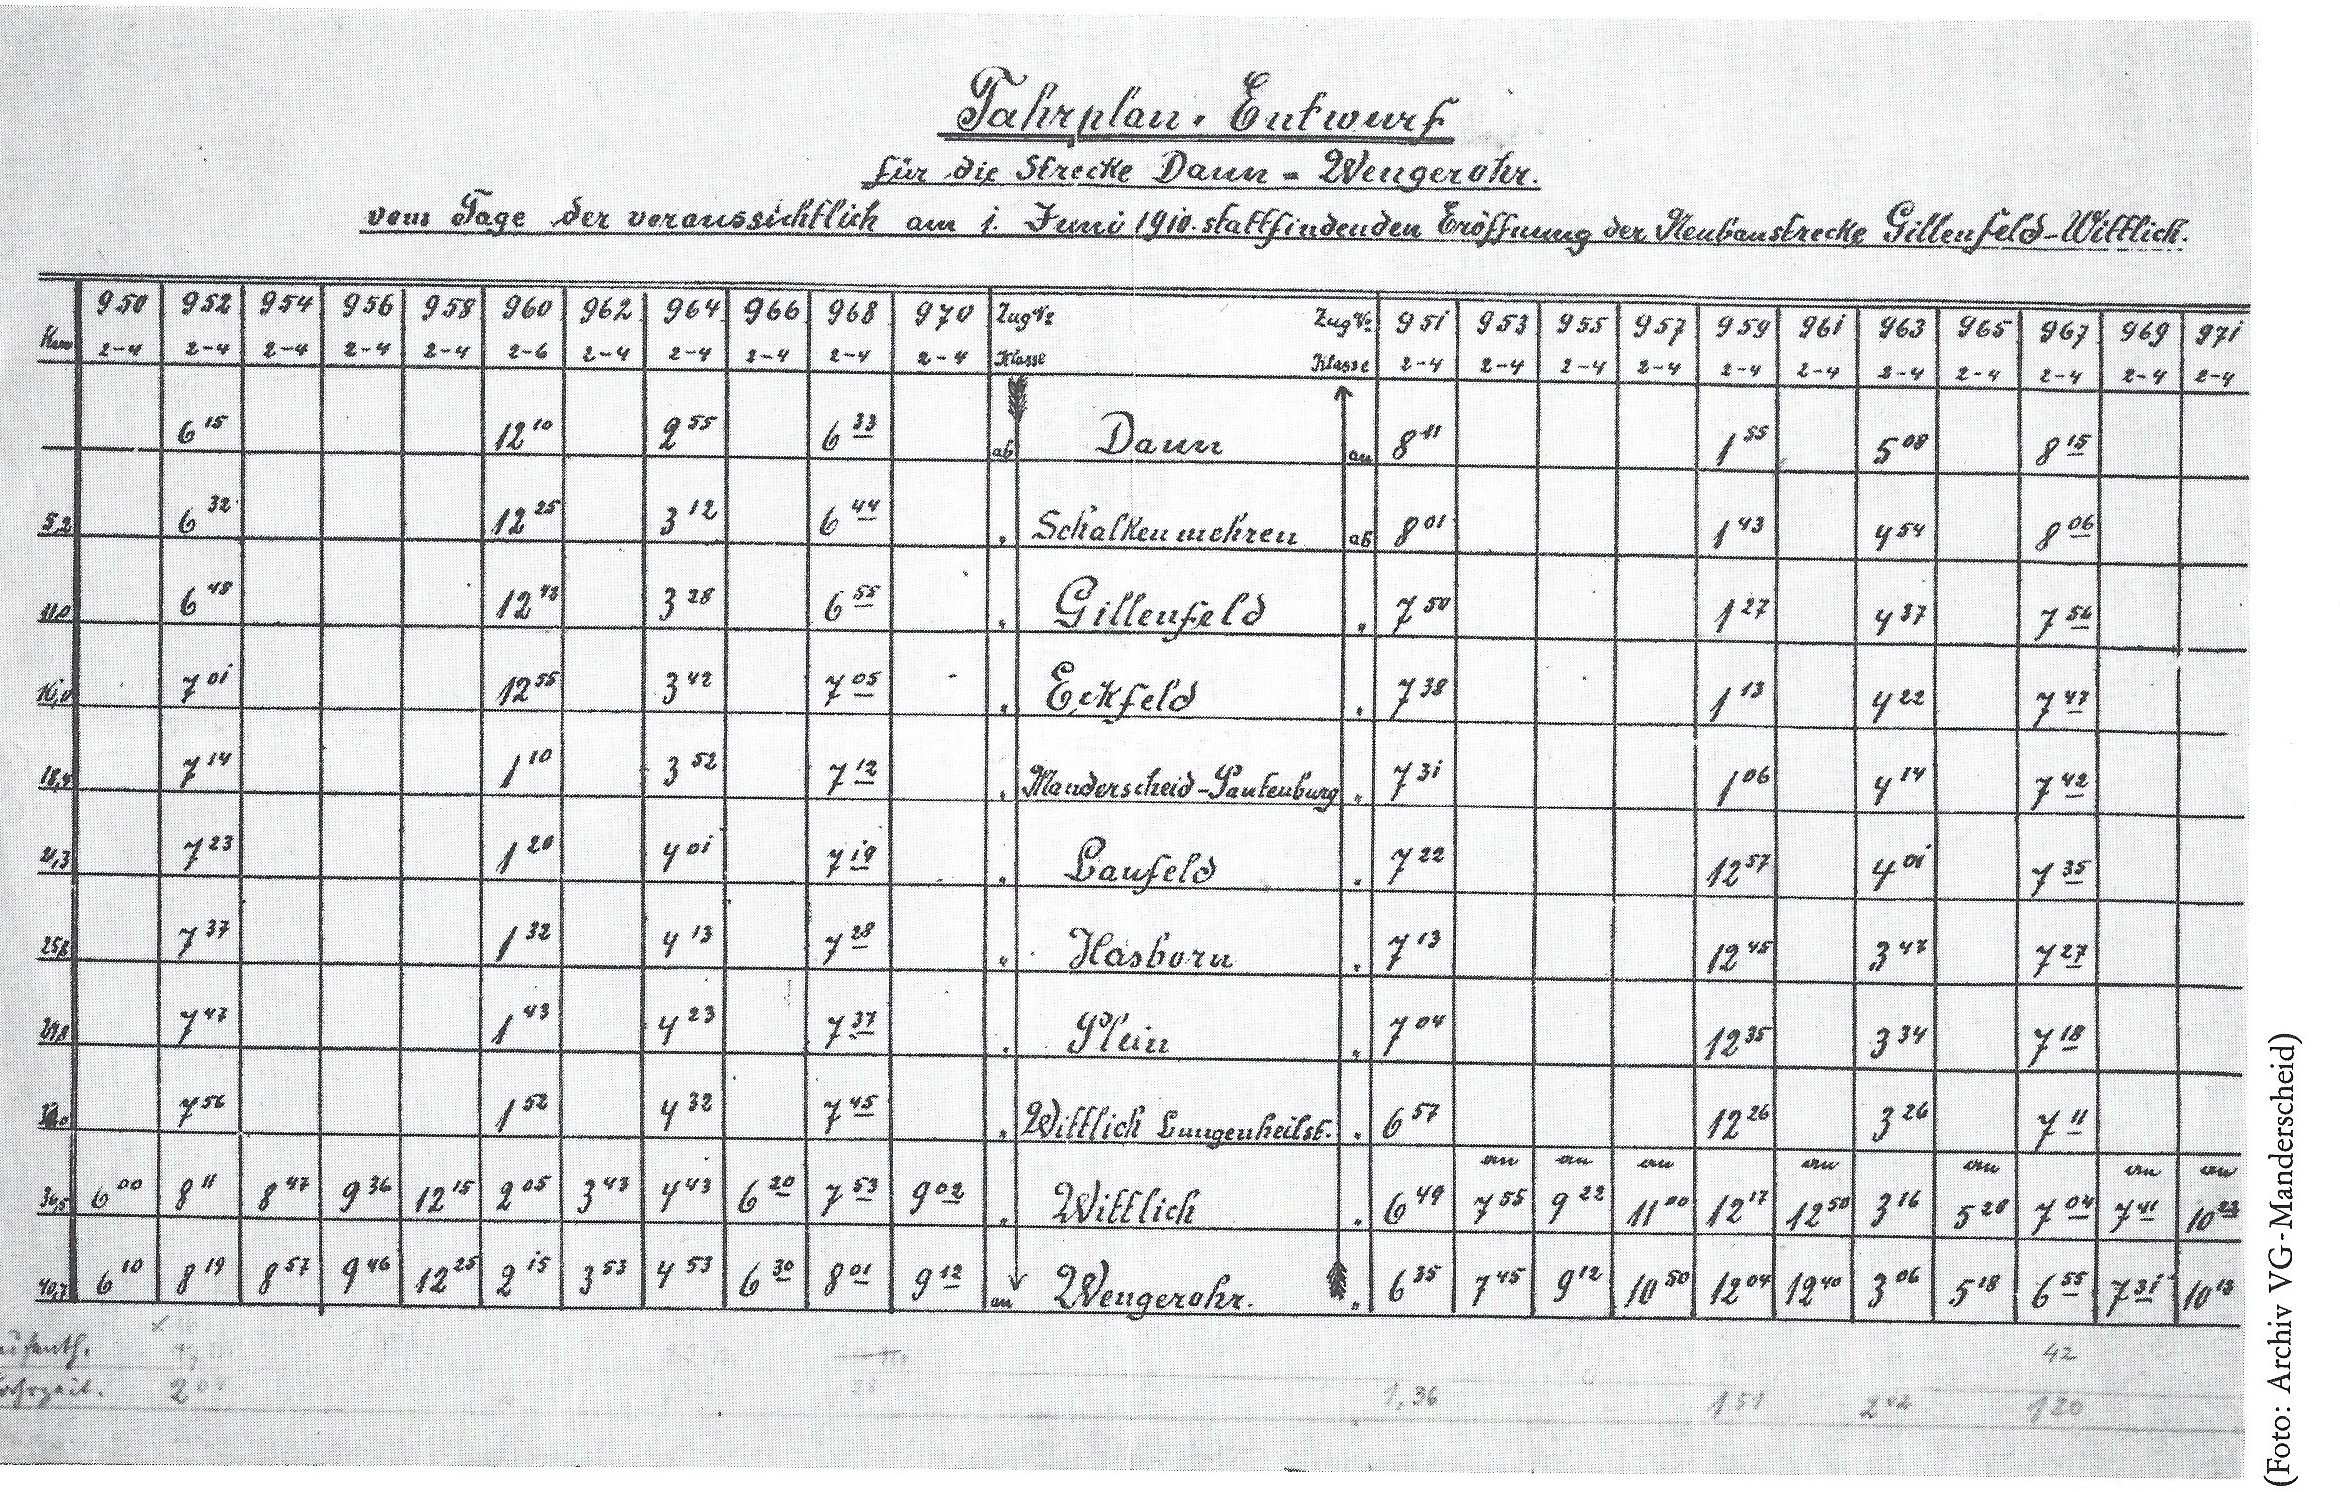 Fahrplan-Entwurf
für die Strecke Daun = Wengerohr.
vom Tage der voraussichtlich am 1. Juni 1910 stattfindenden Eröffnung der Neubaustrecke Gillenfeld-Wittlich.
950 952 954 956 958 960 962 964 966 968 970 Zug Nr Zug Nr 951 953 955 957 959 961 963 965 967 969 971
2-4 2-4 2-4 2-4 2-4 2-6 2-4 2-4 2-4 2-4 2-4 Klasse Klasse 2-4 2-4 2-4 2-4 2-4 2-4 2-4 2-4 2-4 2-4 2-4
6 15 12 10 2 55 6 33 ab Daun an 8 11 1 55 5 08 8 15
5,2 6 32 12 25 3 12 6 44 " Schalkenmehren ab 8 01 1 43 4 54 8 06
11,0 6 48 12 42 3 28 6 55 " Gillenfeld " 7 50 1 27 4 37 7 56
16,0 7 01 12 55 3 42 7 05 " Eckfeld " 7 38 1 13 4 22 7 47
18,4 7 14 1 10 3 52 7 12 " Manderscheid-Pantenburg " 7 31 1 06 4 14 7 42
21,3 7 23 1 20 4 01 7 19 " Laufeld " 7 22 12 57 4 01 7 35
25,8 7 37 1 32 4 13 7 28 " Hasborn " 7 13 12 45 3 47 7 27
29,8 7 47 1 43 4 23 7 37 " Plein " 7 04 12 35 3 34 7 18
7 56 1 52 4 32 7 45 " Wittlich Lungenheilst. " 6 57 12 26 3 26 7 11
an an an an an an an
36,5 6 00 8 11 8 47 9 36 12 15 2 05 3 43 4 43 6 20 7 53 9 02 " Wittlich " 6 49 7 55 9 22 11 00 12 17 12 50 3 16 5 28 7 04 7 41 10 23
40,7 6 10 8 19 8 57 9 46 12 25 2 15 3 53 4 53 6 30 8 01 9 12 an Wengerohr. " 6 35 7 45 9 12 10 50 12 04 12 40 3 06 5 18 6 55 7 31 10 13
42
1,36 1 51 2 02 1 20
(Foto: Archiv VG-Manderscheid)